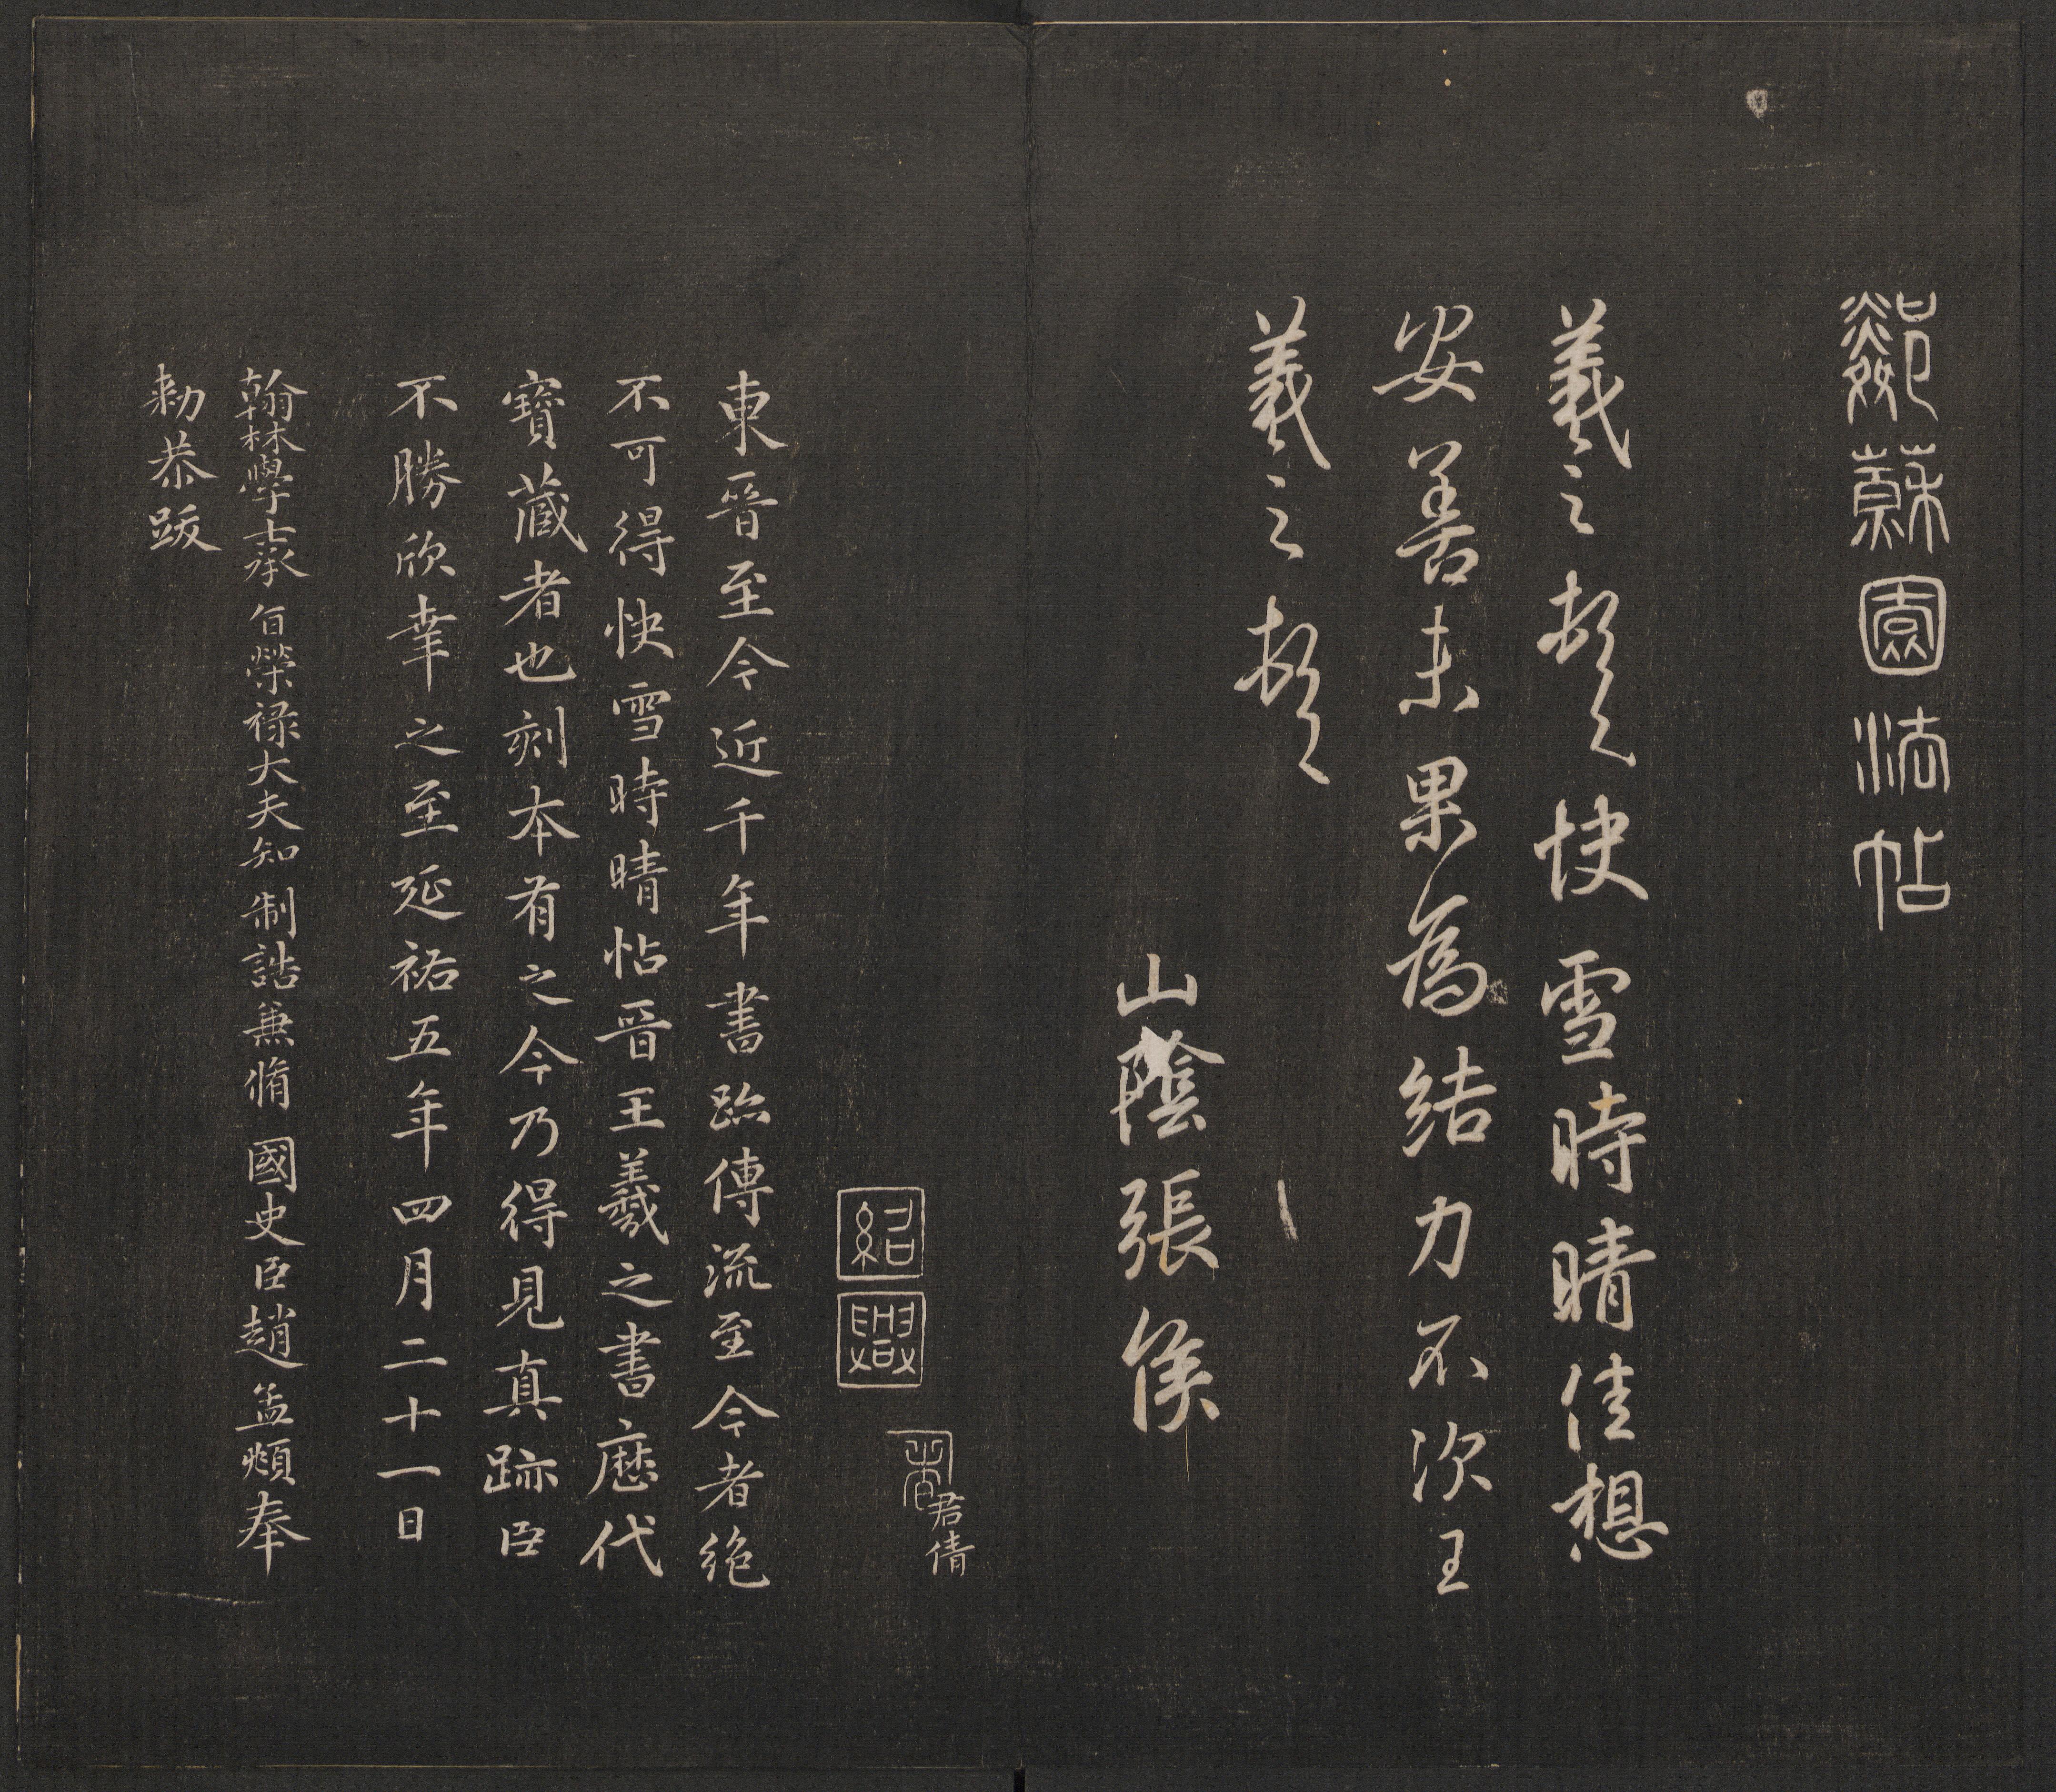 鄰蘇園法帖
羲之頓首快雪時晴佳想
安善未果為結力不次王
羲之頓首
山陰張侯
紹
興
君倩
東晉至今近千年書跡傳流至今者絕
不可得快雪時晴帖晉王羲之書歷代
寶藏者也刻本有之今乃得見真跡臣
不勝欣幸之至延祐五年四月二十一日
翰林學士承旨榮祿大夫知制誥兼脩國史臣趙孟頫奉
勑恭跋